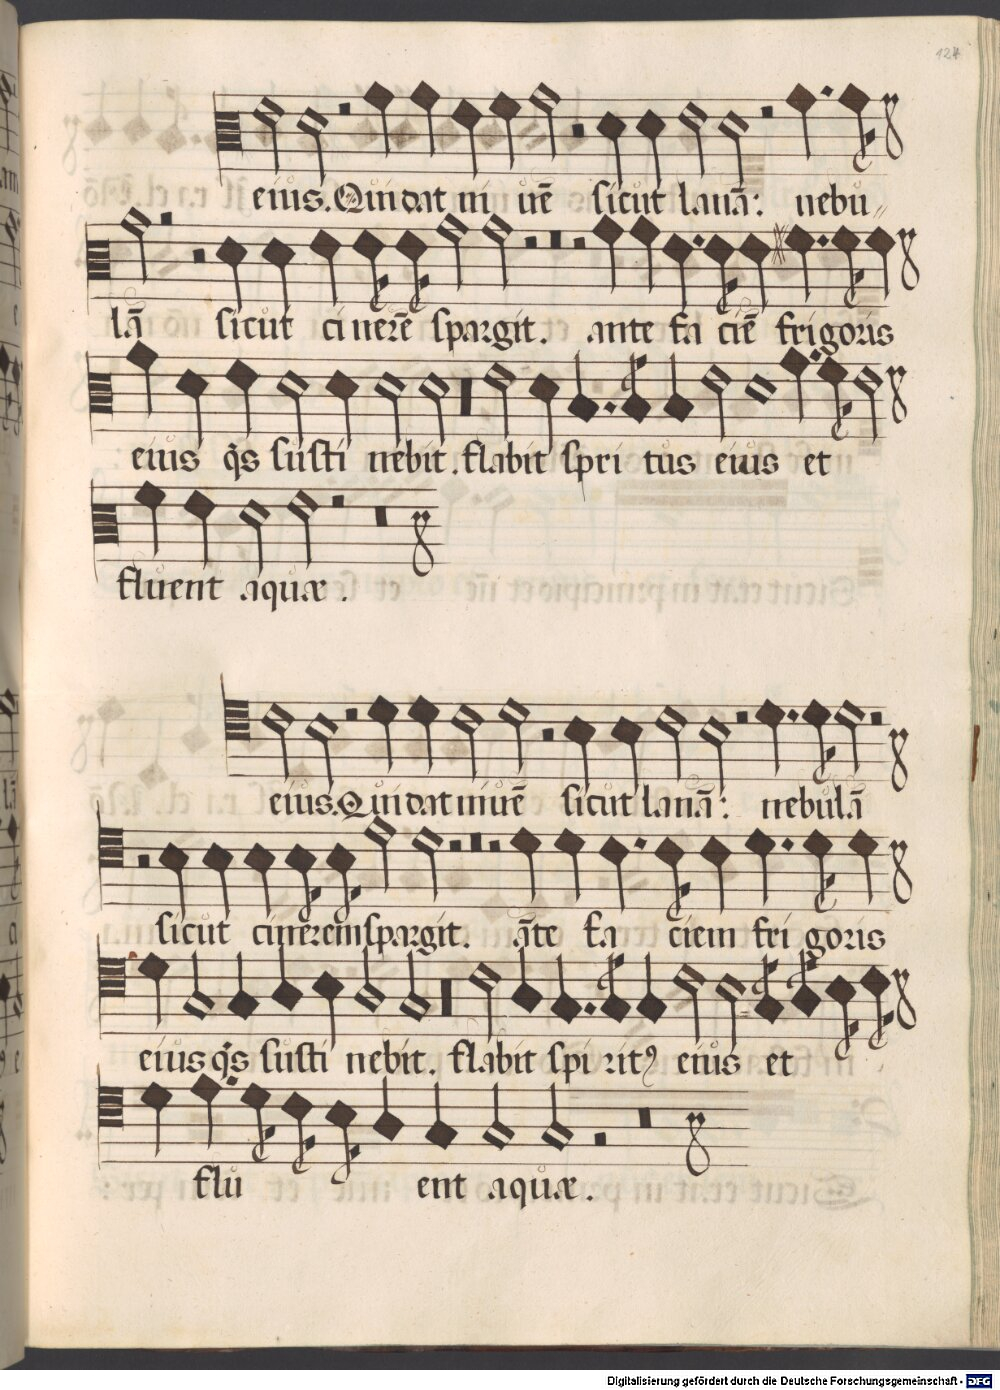 124
eius. Qui dat ni uē sicut lanā: nebu〃
lā sicut ci nerē spargit. ante fa ciē frigoris
eius q̄s susti nebit. flabit spiri tus eius et
fluent aquæ.
eius. Qui dat niuē sicut lanā: nebulā
sicut cineremspargit. āte fa ciem fri goris
eius q̄s susti nebit. flabit spi ritꝰ eius et
flu ent aquæ.
Digitalisierung gefördert durch die Deutsche Forschungsgemeinschaft - DFG